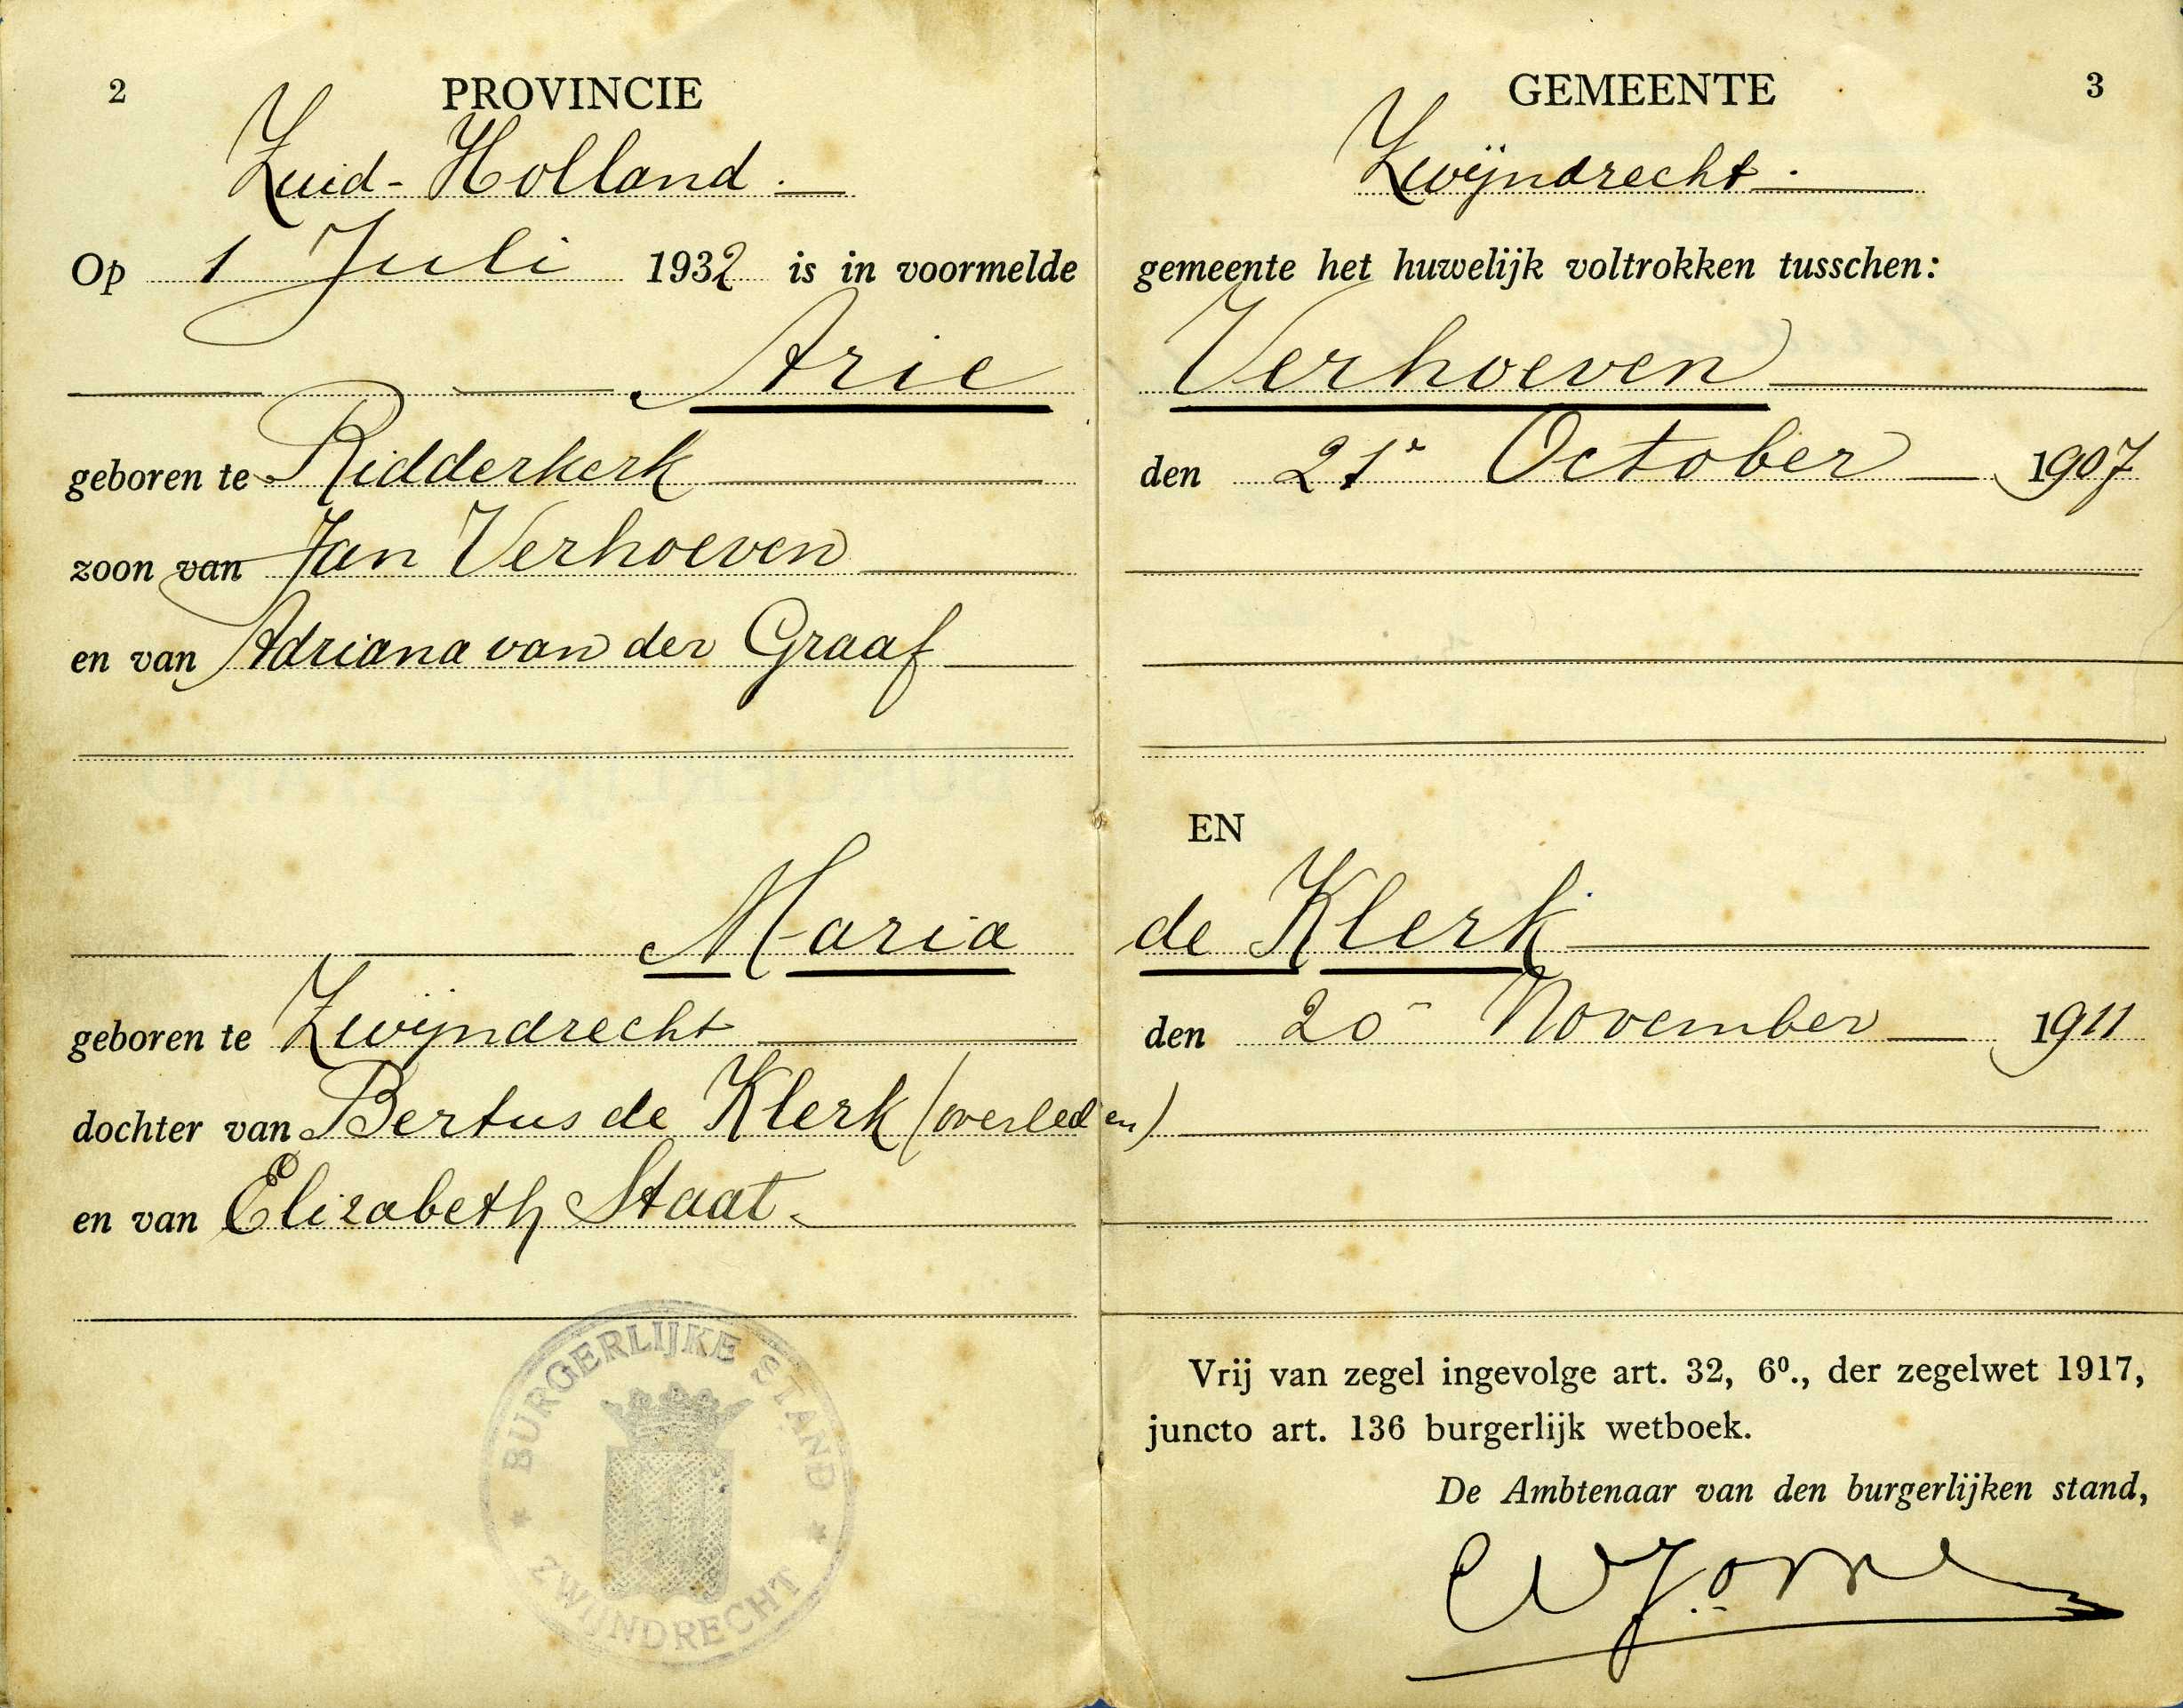 2 PROVINCIE
Zuid-Holland.
Op 1 Juli 1932 is in voormelde
Arie
geboren te Ridderkerk
zoon van Jan Verhoeven
en van Adriana van der Graaf
Maria
geboren te Zwijndrecht
dochter van Bertus de Klerk (overleden)
en van Elizabeth Staat.
BURGERLIJKE STAND
ZWIJNDRECHT
GEMEENTE 3
Zwijndrecht.
gemeente het huwelijk voltrokken tusschen:
Verhoeven
den 21e October 1907
EN
de Klerk
den 20 November 1911
Vrij van zegel ingevolge art. 32, 6º., der zegelwet 1917,
juncto art. 136 burgerlijk wetboek.
De Ambtenaar van den burgerlijken stand,